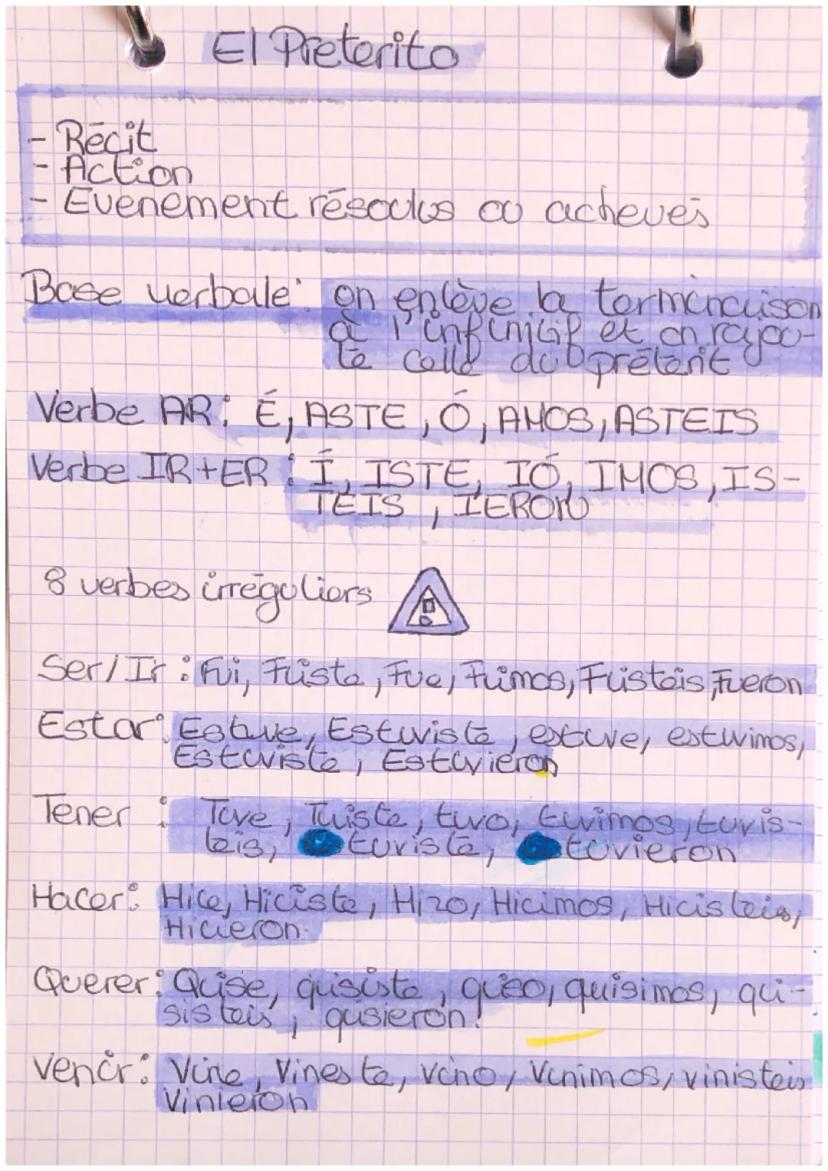 El Preterito
- Récit
- Action
- Evenement résolus ou achevés
Base verbale: on enlève la terminaison
à l'infinitif et on rajou-
te celle du prétérit
Verbe AR: É, ASTE, Ó, AMOS, ASTEIS
Verbe IR+ER: Í, ISTE, IÓ, IMOS, IS-
TEIS, IERON
8 verbes irréguliers
Ser/Ir: Fui, Fuiste, Fue, Fuimos, Fuisteis, Fueron
Estar: Estuve, Estuviste, estuve, estuvimos,
Estuviste, Estuvieron
Tener: Tuve, Tuiste, tuvo, tuvimos, tuvis-
teis, tuviste, tuvieron
Hacer: Hice, Hiciste, Hizo, Hicimos, Hicisteis,
Hicieron.
Querer: Quise, quisiste, quiso, quisimos, qui-
sisteis, qusieron.
Venir: Vine, Vineste, vino, Vinimos, vinisteis
Vinieron